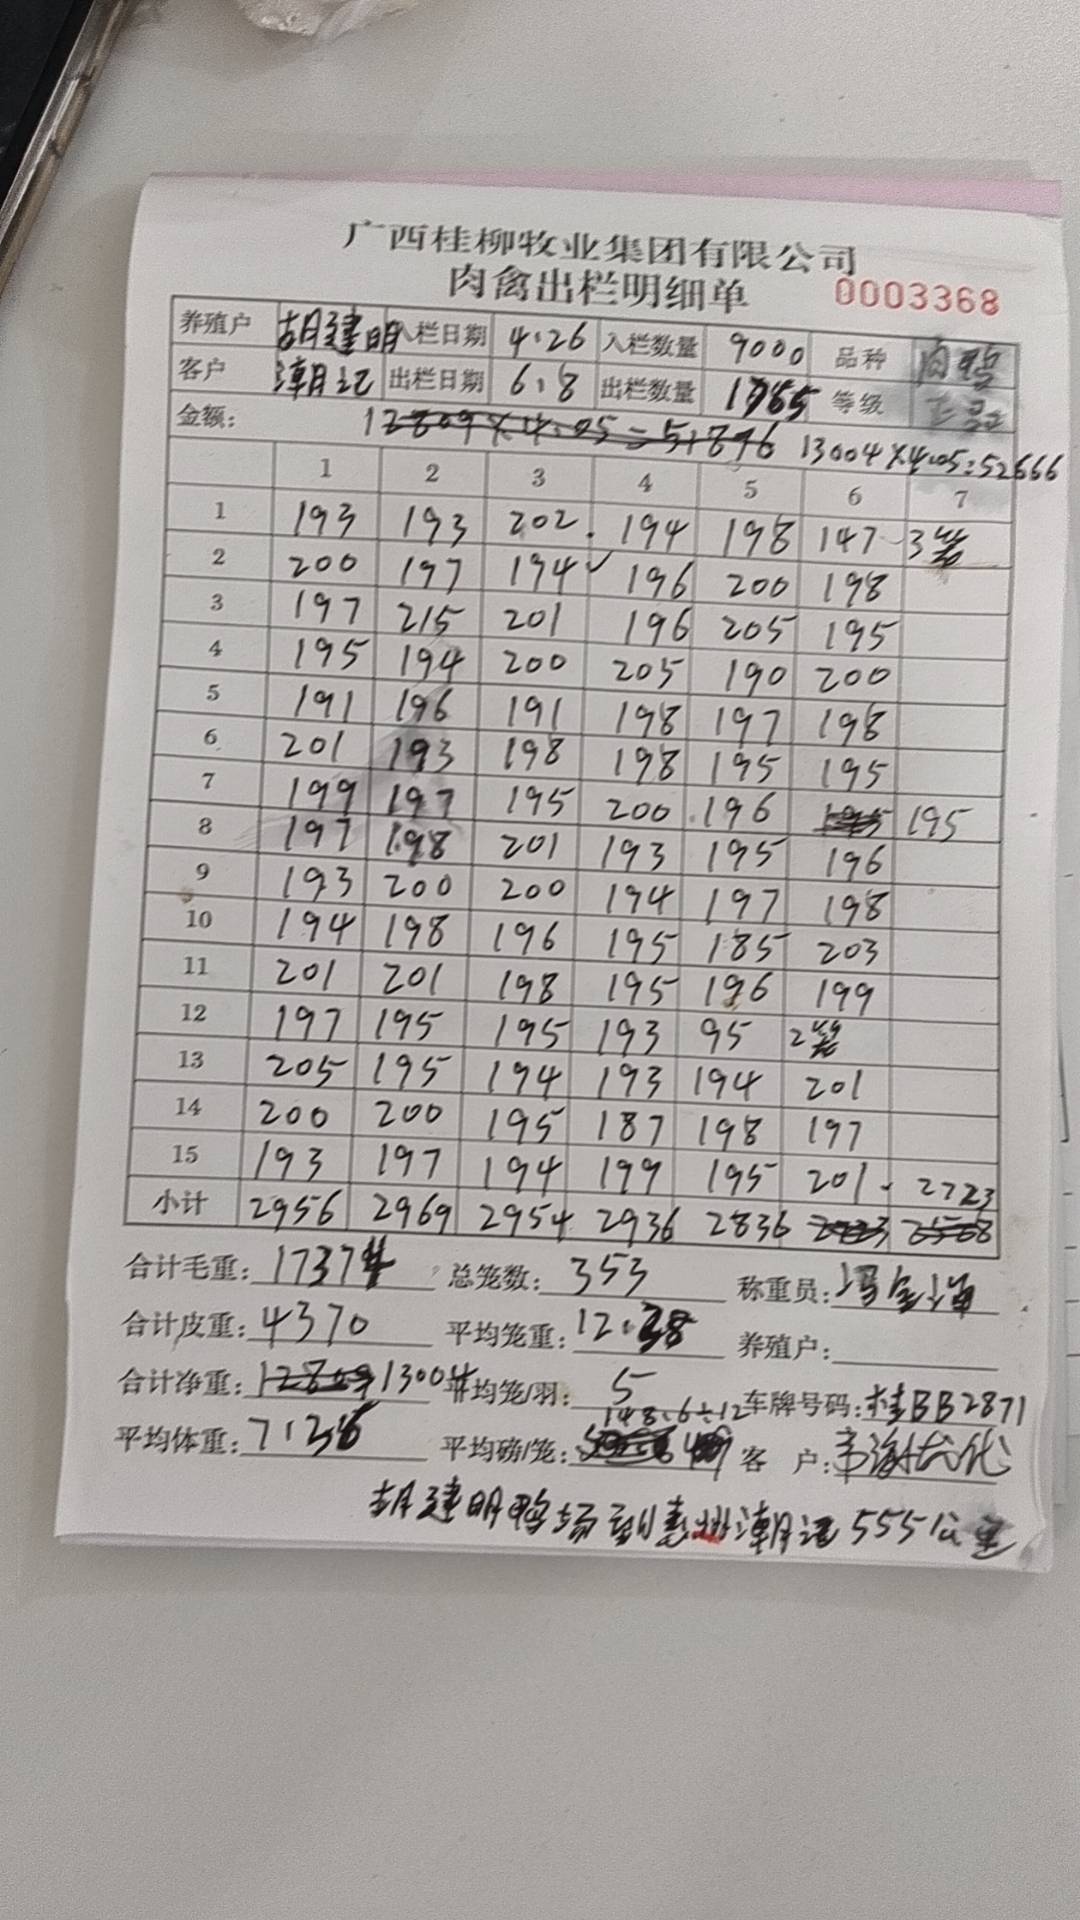 广西桂柳牧业集团有限公司
肉禽出栏明细单 0003368
养殖户 胡建明 入栏日期 4.26 入栏数量 9000 品种 肉鸭
客户 潮记 出栏日期 6.8 出栏数量 1765 等级 正品
金额: 12809×4.05=51876 13004×4.05=52666
1 2 3 4 5 6 7
1 193 193 202 194 198 147 3笼
2 200 197 194 196 200 198
3 197 215 201 196 205 195
4 195 194 200 205 190 200
5 191 196 191 198 197 198
6 201 193 198 198 195 195
7 199 197 195 200 196 195 195
8 197 198 201 193 195 196
9 193 200 200 194 197 198
10 194 198 196 195 185 203
11 201 201 198 195 196 199
12 197 195 195 193 95 2笼
13 205 195 194 193 194 201
14 200 200 195 187 198 197
15 193 197 194 199 195 201 2723
小计 2956 2969 2954 2936 2836
合计毛重: 17374 总笼数: 353 称重员:
合计皮重: 4370 平均笼重: 12.38 养殖户:
合计净重: 12809 13004 平均笼/羽: 5 车牌号码: 桂BB2871
148.6÷12
平均体重: 7.36 平均磅/笼: 客 户:
胡建明鸭场到惠州潮记 555公里